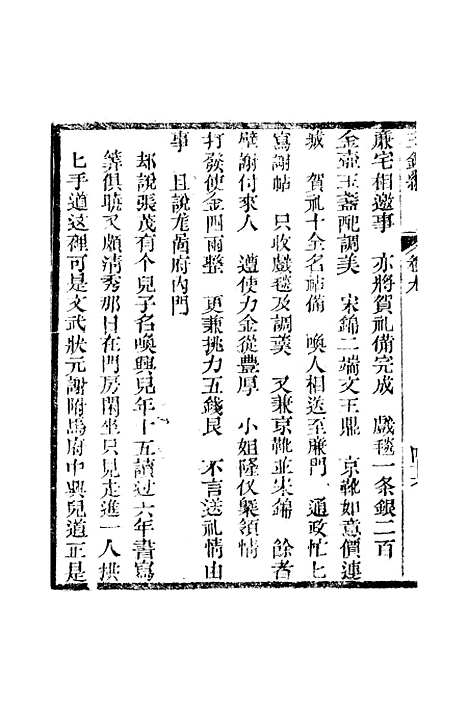 廉宅相邀事　亦將賀礼備完成　戲毯一条銀二百
金壺玉盞配調羹　宋錦二端文王鼎　京靴如意價連
城　賀礼十全名帖備　喚人相送至廉門　通政忙匕
寫謝帖　只收戲毯及調羹　又兼京靴並宋錦　餘者
璧謝付來人　遣使力金從豐厚　小姐隆仪槩領情
打發使金四兩整　更兼挑力五錢艮　不言送礼情由
事　且說龙啚府內門
却說張茂有个兒子名喚興兒年十五讀过六年書寫
筭俱暁又頗清秀那日在門房閑坐只見走進一人拱
匕手道这裡可是文武狀元謝附馬府中興兒道正是